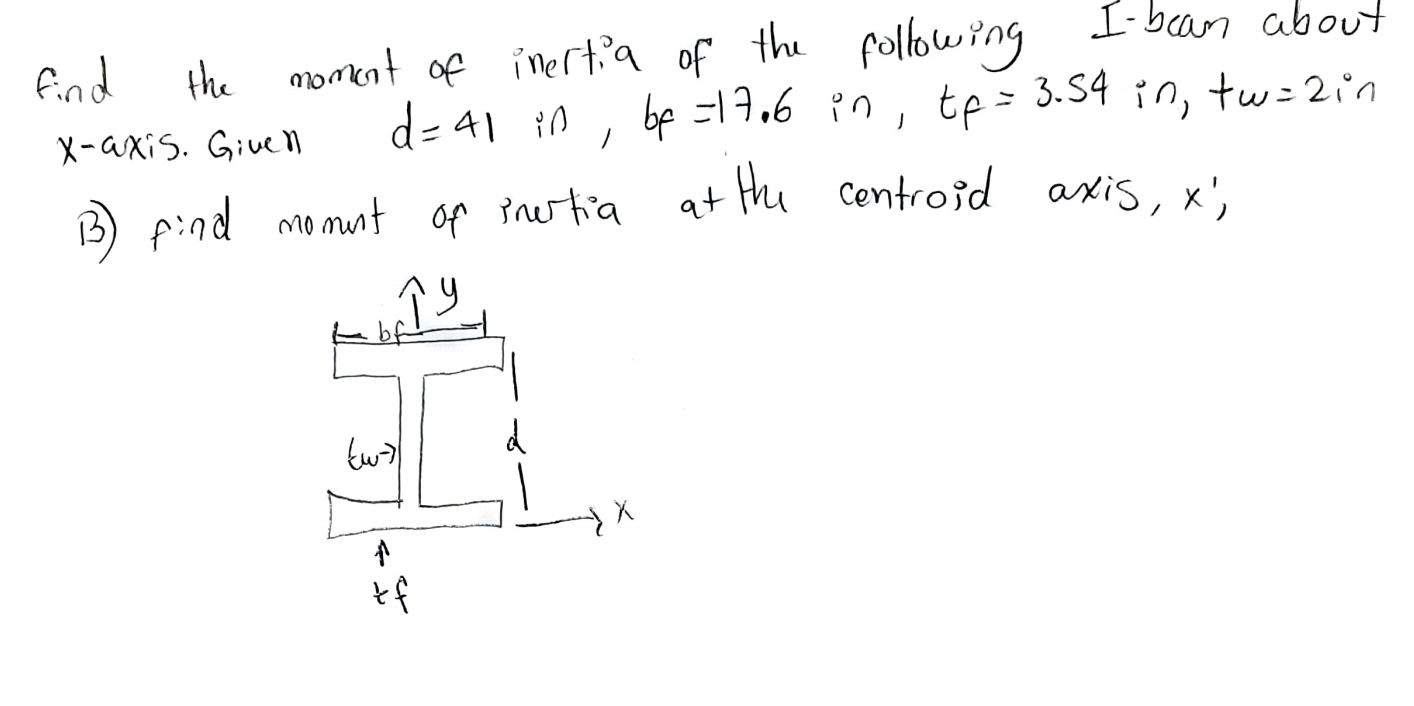 find the moment of inertia of the following I-beam about
x-axis. Given d=41 in, bf =17.6 in, tf = 3.54 in, tw=2in
B) find moment of inertia at the centroid axis, x';
y
bf
tw→
d
x
tf